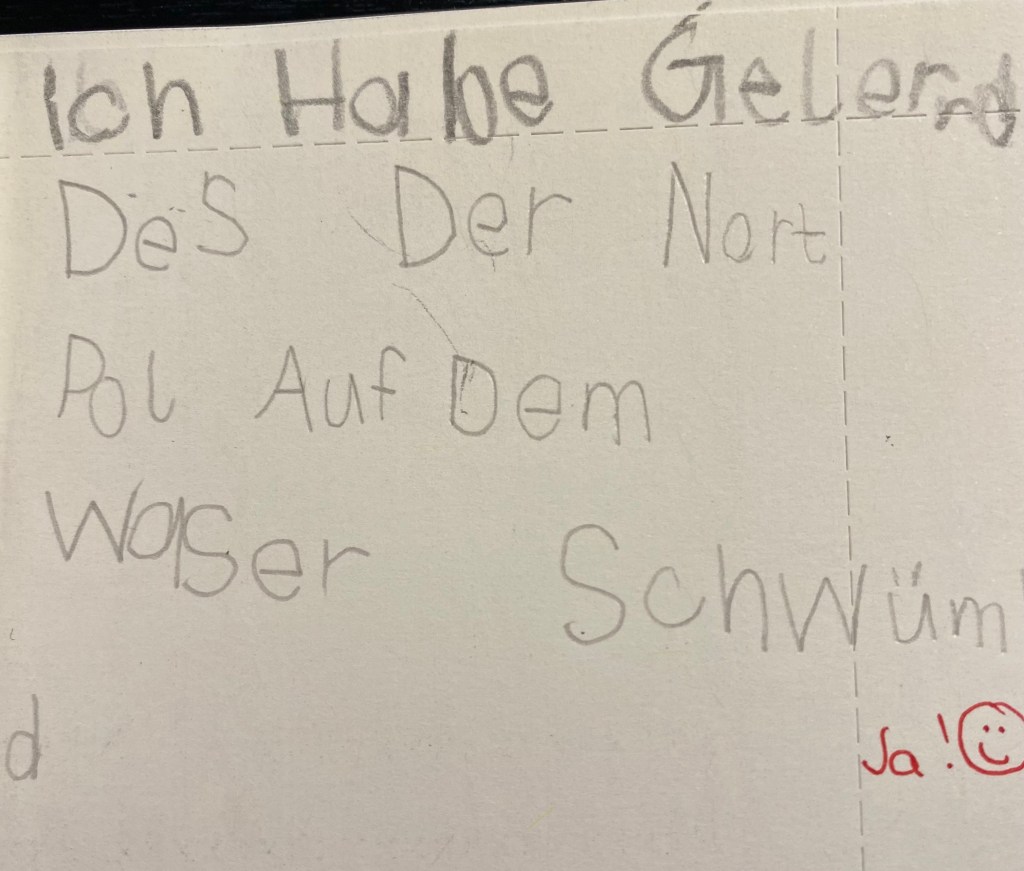 Ich Habe Gelernd
Des Der Nort
Pol Auf Dem
Waser Schwüm
d
Ja!